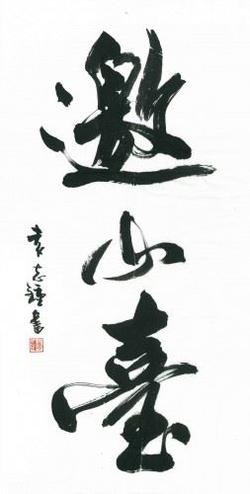 邀山臺
袁志鍾書